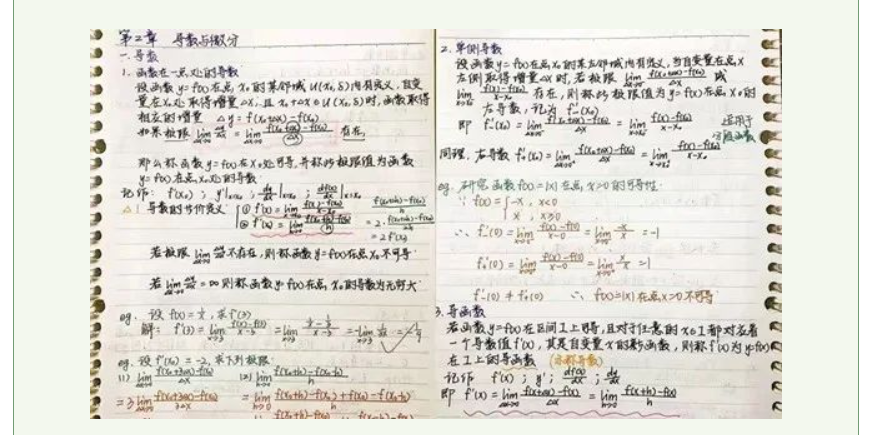 第2章 导数与微分
一.导数
1.函数在一点处的导数
设函数y=f(x)在点x₀的某邻域U(x₀,δ)内有定义,自变
量在x₀处取得增量△x,且x₀+△x∈U(x₀,δ)时,函数取得
相应的增量 △y=f(x₀+△x)-f(x₀)
如果极限 lim△x→0 △y/△x = lim△x→0 (f(x₀+△x)-f(x₀))/△x 存在,
那么称函数y=f(x)在x₀处可导,并称此极限值为函数
y=f(x)在点x₀处的导数
记作: f'(x₀) ; y'|x=x₀ ; dy/dx|x=x₀ ; df(x)/dx|x=x₀
△! 导数的等价定义:
若极限 lim△x→0 △y/△x 不存在,则称函数y=f(x)在点x₀不可导
若 lim△x→0 △y/△x = ∞ 则称函数y=f(x)在点x₀的导数为无穷大
eg. 设f(x)=1/x,求f'(3)
解: f'(3)=lim x→3 (f(x)-f(3))/(x-3) = lim x→3
eg. 设f'(x₀)=-2,求下列极限:
(1) lim △x→0 (f(x₀+3△x)-f(x₀))/△x (2) lim h→0 (f(x₀+h)-f(x₀-h))/h
=3 lim △x→0 (f(x₀+3△x)-f(x₀))/3△x
2.单侧导数
设函数y=f(x)在点x₀的某左邻域内有定义,当自变量在点x
左侧取得增量△x时,若极限 lim (f(x₀+△x)-f(x₀))/△x 或
lim (f(x)-f(x₀))/(x-x₀) 存在,则称此极限值为y=f(x)在点x₀的
左导数,记为 f'₋(x₀)
即 f'₋(x₀)=lim (f(x₀+△x)-f(x₀))/△x = lim (f(x)-f(x₀))/(x-x₀) 适用于
分段函数
同理,右导数 f'₊(x₀)=lim (f(x₀+△x)-f(x₀))/△x = lim (f(x)-f(x₀))/(x-x₀)
eg. 研究函数f(x)=|x|在点x=0的可导性
∵ f(x)={-x, x<0
x, x≥0
∴ f'₋(0)=lim (f(x)-f(0))/(x-0)=lim -x/x=-1
f'₊(0)=lim (f(x)-f(0))/(x-0)=lim x/x=1
f'₋(0)≠f'₊(0) ∴ f(x)=|x|在点x=0不可导
3.导函数
若函数y=f(x)在区间I上可导,且对于任意的x∈I都对应着
一个导数值f'(x),其是自变量x的新函数,则称f'(x)为y=f(x)
在I上的导函数 (亦称导数)
记作 f'(x) ; y' ; df(x)/dx ; dy/dx
即 f'(x)=lim △x→0 (f(x+△x)-f(x))/△x = lim h→0 (f(x+h)-f(x))/h